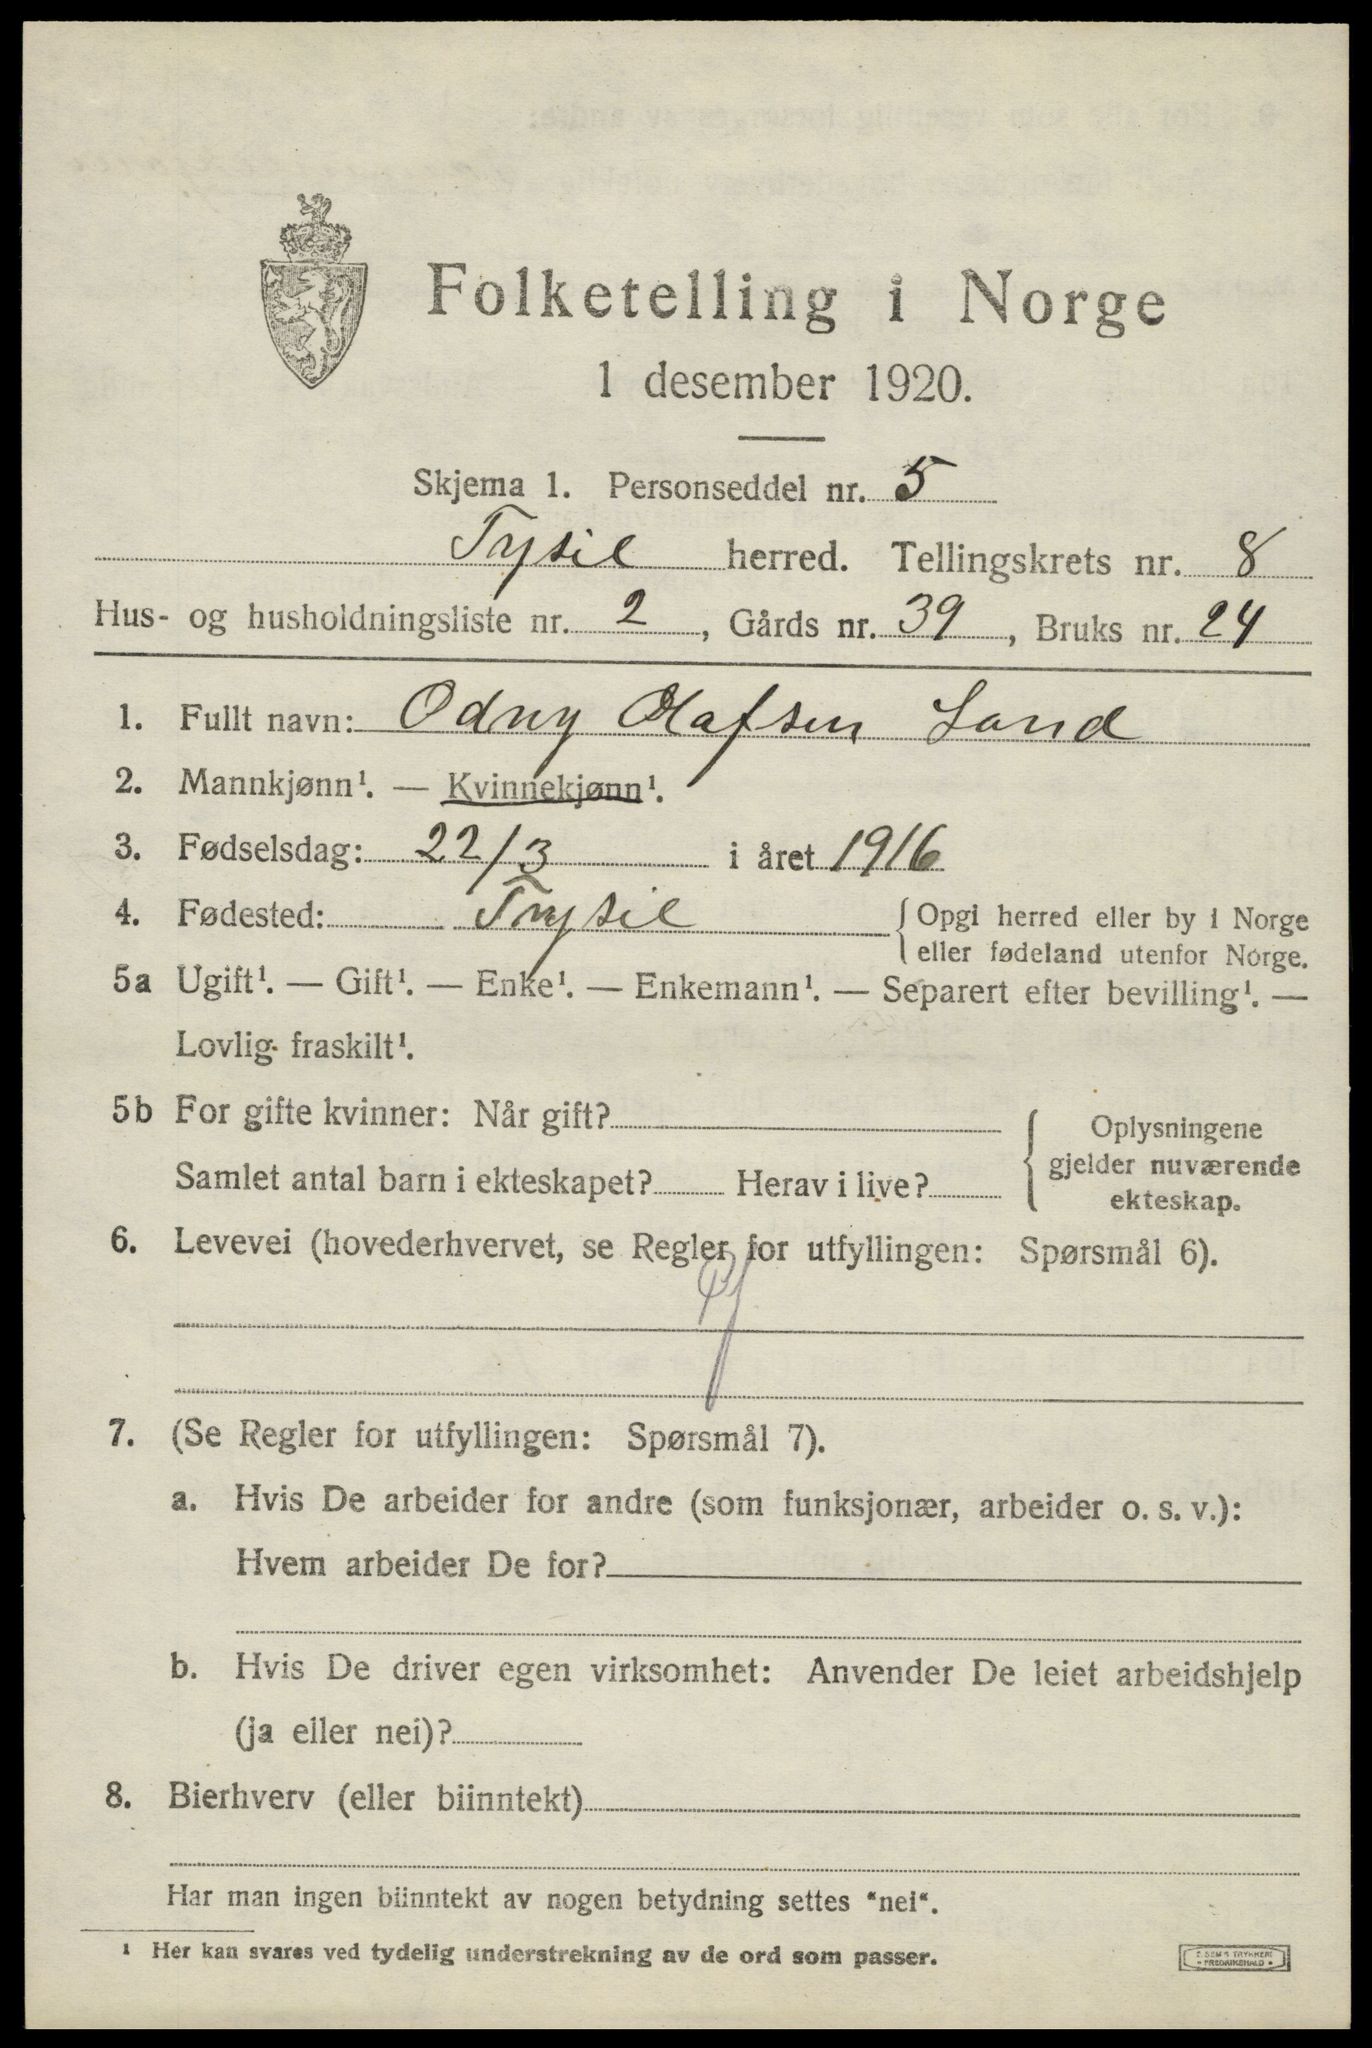 Folketelling i Norge
1 desember 1920.
Skjema 1. Personseddel nr. 5
Trysil herred. Tellingskrets nr. 8
Hus- og husholdningsliste nr. 2, Gårds nr. 39, Bruks nr. 24
1. Fullt navn: Odny Olafsen Land
2. Mannkjønn¹. — Kvinnekjønn¹.
3. Fødselsdag: 22/3 i året 1916
4. Fødested: Trysil {Opgi herred eller by i Norge
eller fødeland utenfor Norge.
5a Ugift¹. — Gift¹. — Enke¹. — Enkemann¹. — Separert efter bevilling¹. —
Lovlig fraskilt¹.
5b For gifte kvinner: Når gift?
Samlet antal barn i ekteskapet? Herav i live?
Oplysningene
gjelder nuværende
ekteskap.
6. Levevei (hovederhvervet, se Regler for utfyllingen: Spørsmål 6).
7. (Se Regler for utfyllingen: Spørsmål 7).
a. Hvis De arbeider for andre (som funksjonær, arbeider o. s. v.):
Hvem arbeider De for?
b. Hvis De driver egen virksomhet: Anvender De leiet arbeidshjelp
(ja eller nei)?
8. Bierhverv (eller biinntekt)
Har man ingen biinntekt av nogen betydning settes "nei".
¹ Her kan svares ved tydelig understrekning av de ord som passer.
E. SEM'S TRYKKERI
FREDRIKSHALD